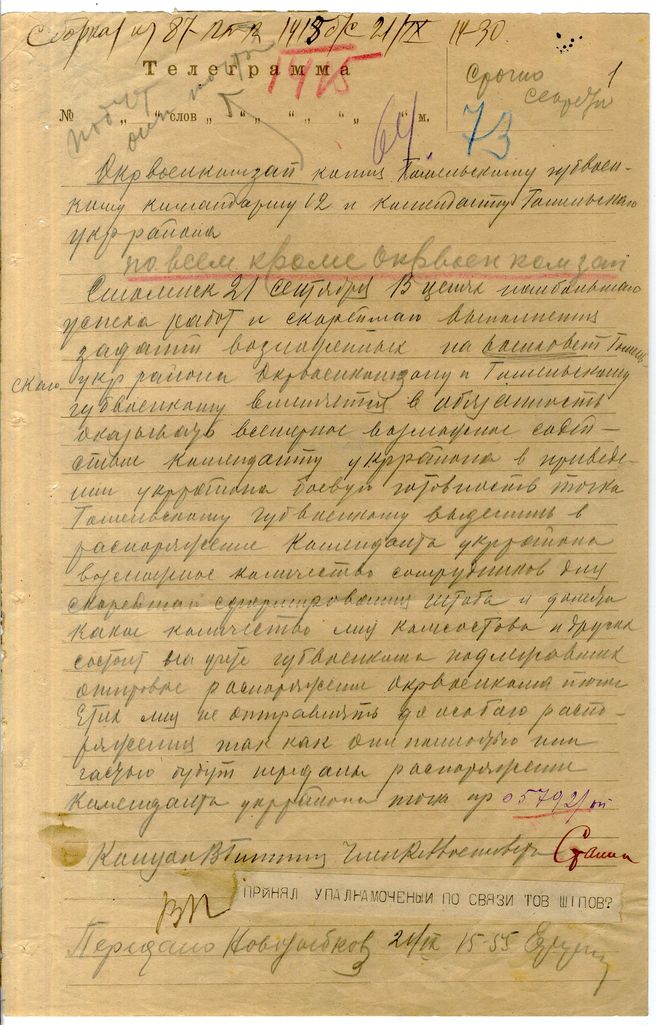 21/IX 14-30.
Телеграмма
1415
срочно
1
№ „ „ слов „ 5 „ „ „ „ „ м.
64
73
Окрвоенкомзап копия Гомельскому губвоен-
кому командарму 12 и коменданту Гомельского
укррайона
по всем кроме Окрвоенкомзап
Смоленск 21 сентября В целях наибольшего
успеха работ и скорейшаго выполнения
задач возложенных на
укррайона Окрвоенкомзапу и Гомельскому
губвоенкому вменяется в обязанность
оказывать всемерное возможное содей-
ствие коменданту укррайона в приведе-
нии укррайона боевую готовность точка
Гомельскому губвоенкому выделить в
распоряжение Коменданта укррайона
возможное количество сотрудников для
скорейшаго сформирования штаба и
какое количество лиц комсостава и других
состоит на учете губвоенкома подлежащих
отправке распоряжение окрвоенкома точка
Етих лиц не отправлять до особаго распо-
ряжения так как они полностью или
частью будут переданы распоряжение
Коменданта укррайона точка нр 05792/оп
Командзап Гиттис Член Реввоенсовета Сталин
ПРИНЯЛ УПАЛНАМОЧЕНЫЙ ПО СВЯЗИ ТОВ ШІПОВ?
Передано Новозыбков 21/IX 15-55